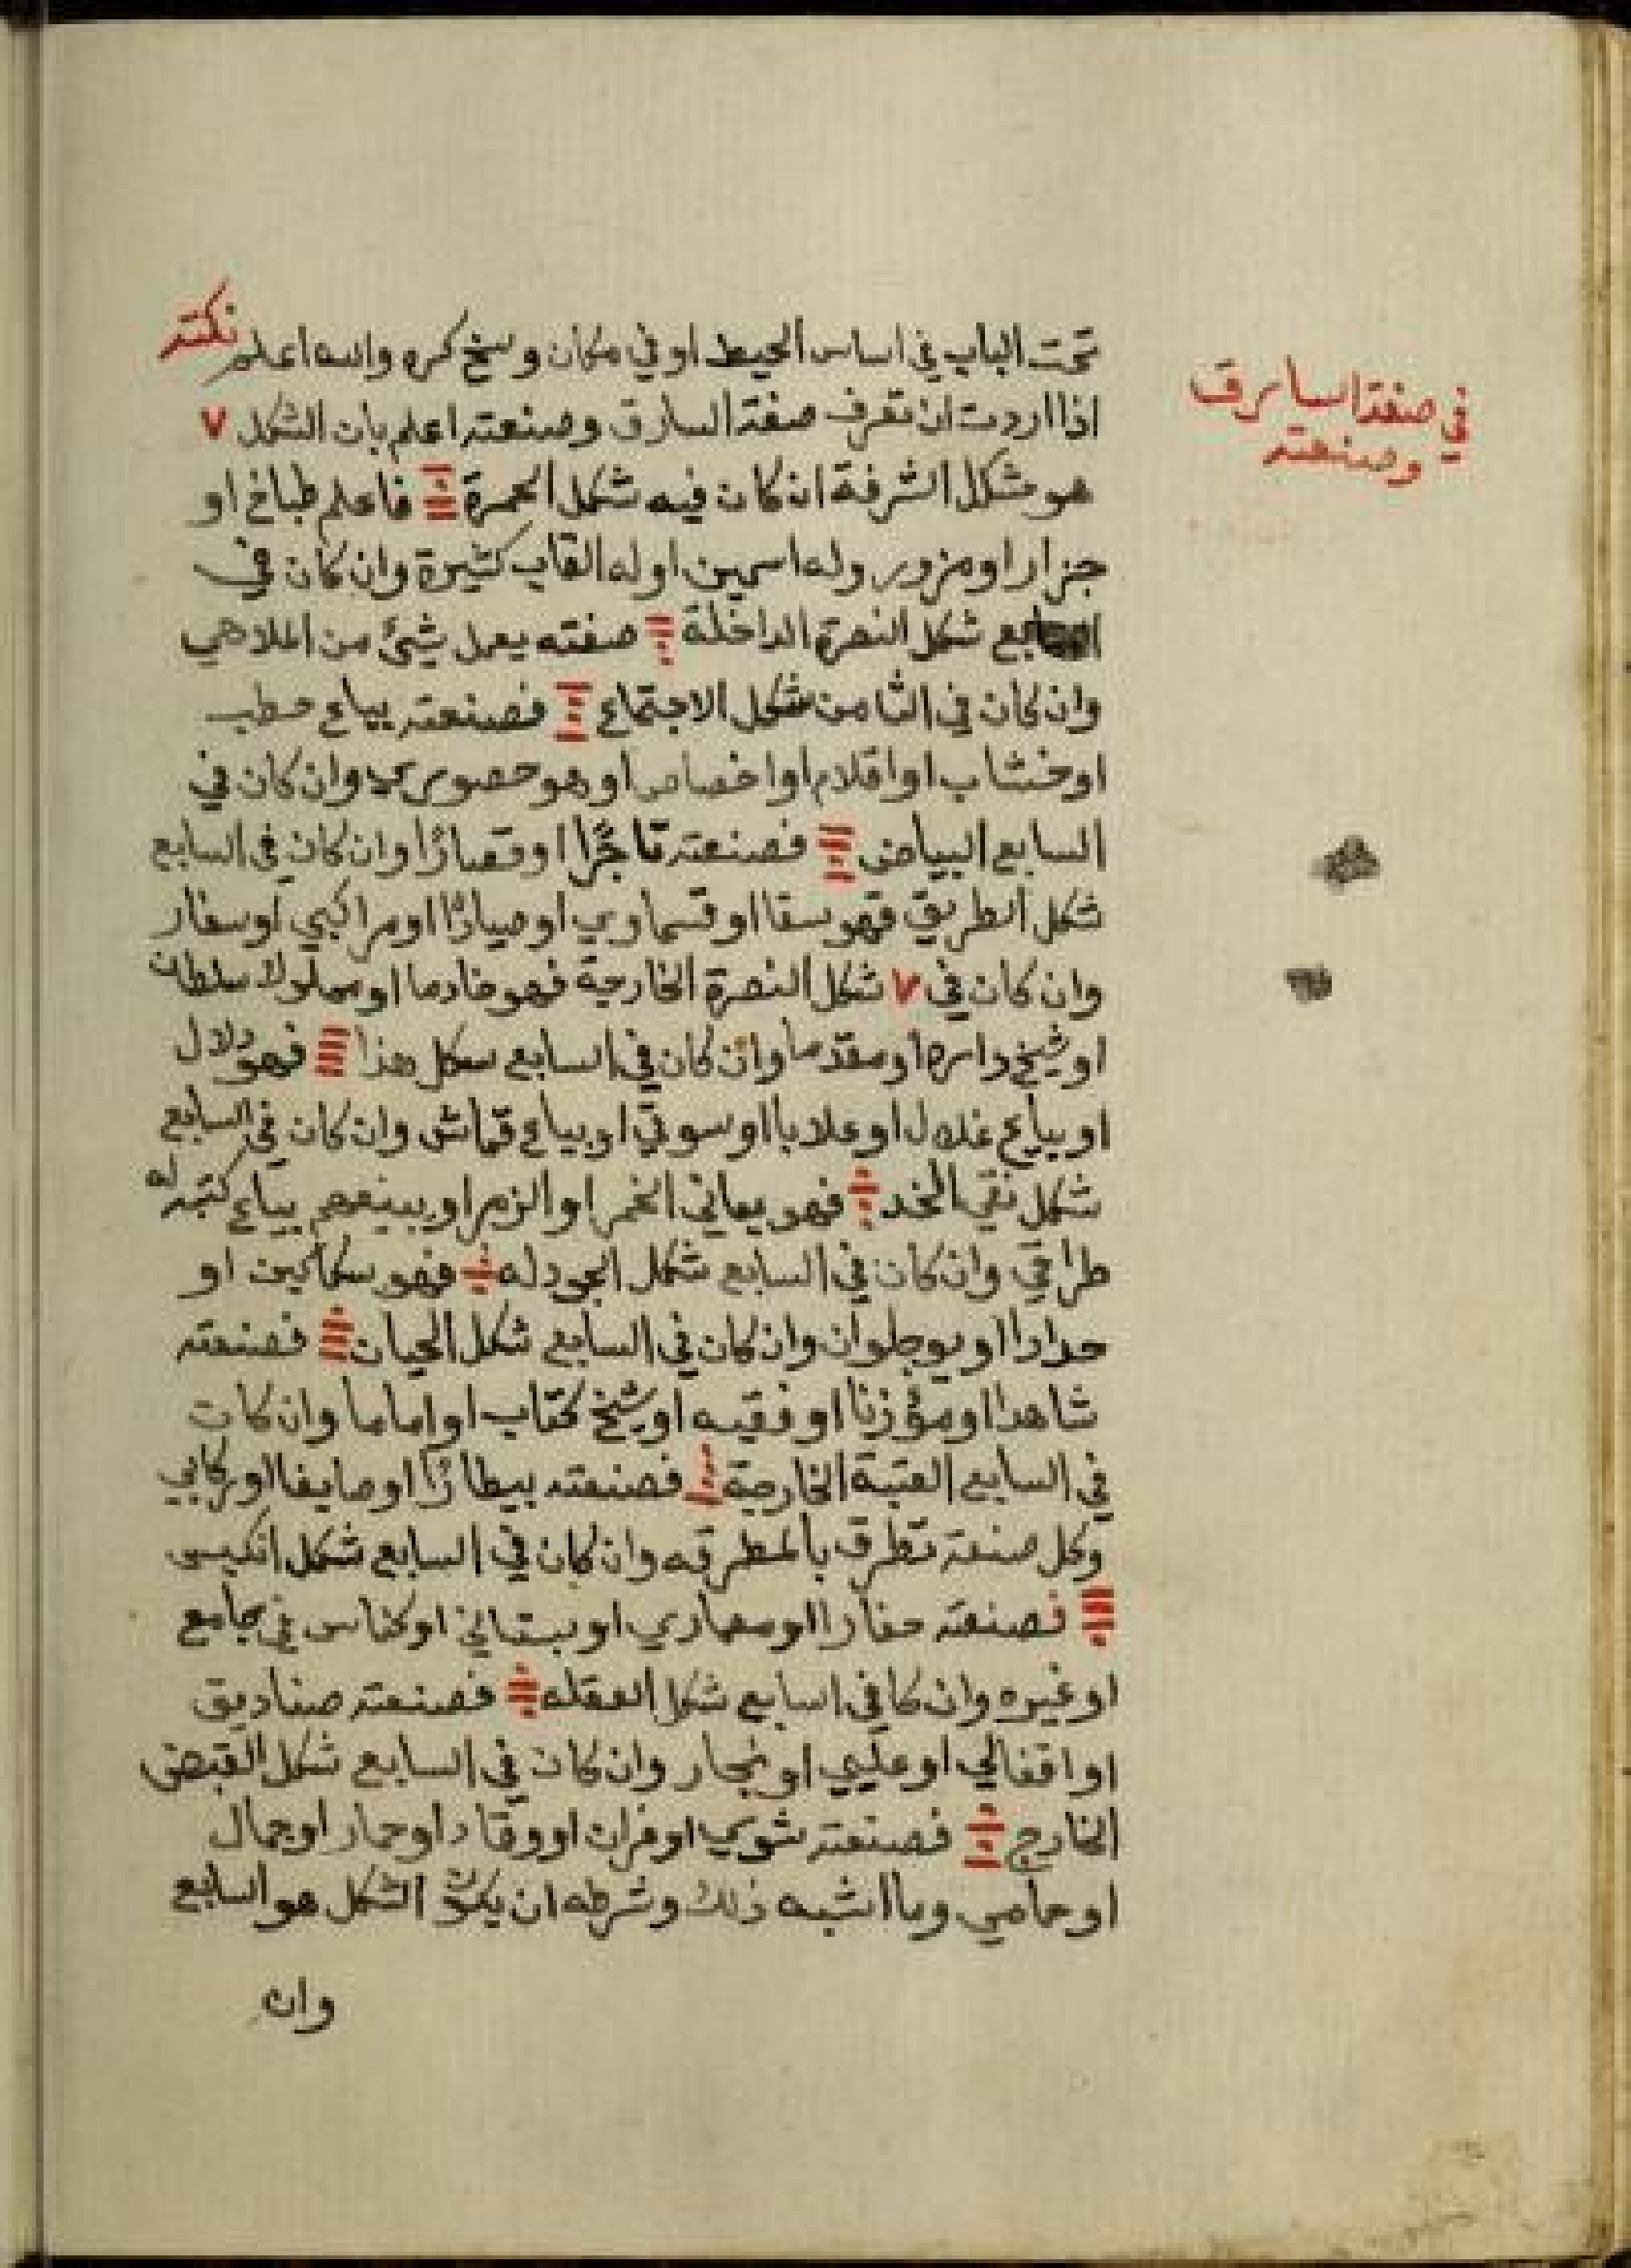 تحت الباب في اساس الحيط او في مكان وسخ كره والله اعلم نكتة
في صفة السارق
وصنعته
اذا اردت ان تعرف صفة السارق وصنعته اعلم بان الشكل ٧
هو شكل الشرفة ان كان فيه شكل الحمرة فاعلم طباخ او
جزار او مزور وله اسمين او له القاب كثيرة وان كان في
شكل النصرة الداخلة صفته يعمل شئ من الملاهي
وان كان في الثامن شكل الاجتماع فصنعته بياع حطب
او خشاب او اقلام او اخصاص او هو حصوري وان كان في
السابع البياض فصنعته تاجرًا او قصارًا وان كان في السابع
شكل الطريق فهو سقا او قسماوي او صيادًا او مراكبي او سفار
وان كان في ٧ شكل النصرة الخارجة فهو خادما او مملوك سلطان
او شيخ داره او مقدما وان كان في السابع سكل هذا فهو دلال
او بياع غلال او علابا او سوقي او بياع قماش وان كان في السابع
شكل نقي الخد فهو يعاني الخمر او الزمر او بياع
وان كان في السابع شكل الجودله فهو سكاكين او
حدادا او وان كان في السابع شكل الحيان فصنعته
شاهدا او مؤذنا او فقيه او شيخ كتاب او اماما وان كان
في السابع العتبة الخارجة فصنعته بيطارًا او صايغا او ركابي
وكل صنعة تطرق بالمطرقه وان كان في السابع شكل انكيس
فصنعته حفارا او معماري او بستاني او كناس في جامع
او غيره وان كا في السابع شكل العقله فصنعته صناديق
او اقفالي او علبي او نجار وان كان في السابع شكل القبض
الخارج فصنعته شوي او فران او وقاد او حمار او جمال
او حمامي وما اشبه ذلك وشرطه ان يكون الشكل هو السابع
وان